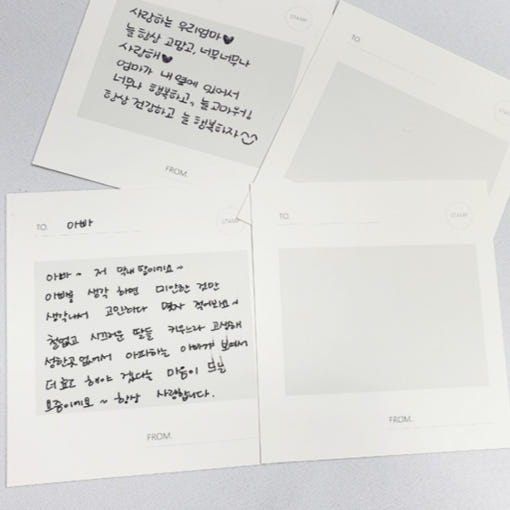 STAMP
사랑하는 우리엄마♥
늘 항상 고맙고, 너무너무나
사랑해♥
엄마가 내 옆에 있어서
너무나 행복하고, 늘 고마워!
항상 건강하고 늘 행복하자
FROM.
TO.
TO. 아빠
STAMP
아빠~ 저 막내 딸이에요~
아빠를 생각 하면 미안한 것만
생각나서 고민하다 몇자 적어봐요~
철없고 시끄러운 딸들 키우느라 고생해
성한곳 없어서 아파하는 아빠가 보여서
더 효도 해야 겠다는 마음이 드는
요즘이에요~ 항상 사랑합니다.
FROM.
TO.
STAMP
FROM.